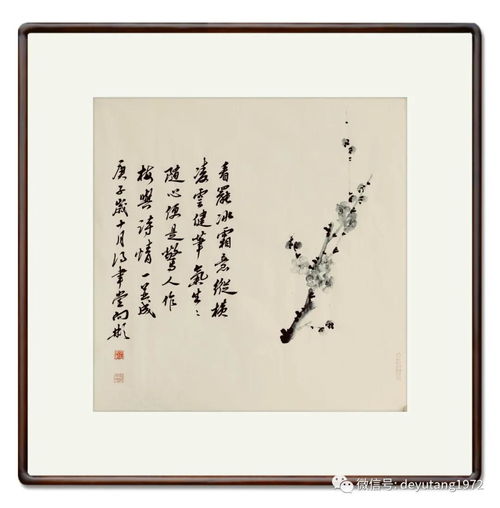 看罷冰霜意縱橫
凌雲健筆氣生〻
隨心便是驚人作
梅與詩情一成
庚子歲十月得聿堂向彬
微信号: deyutang1972